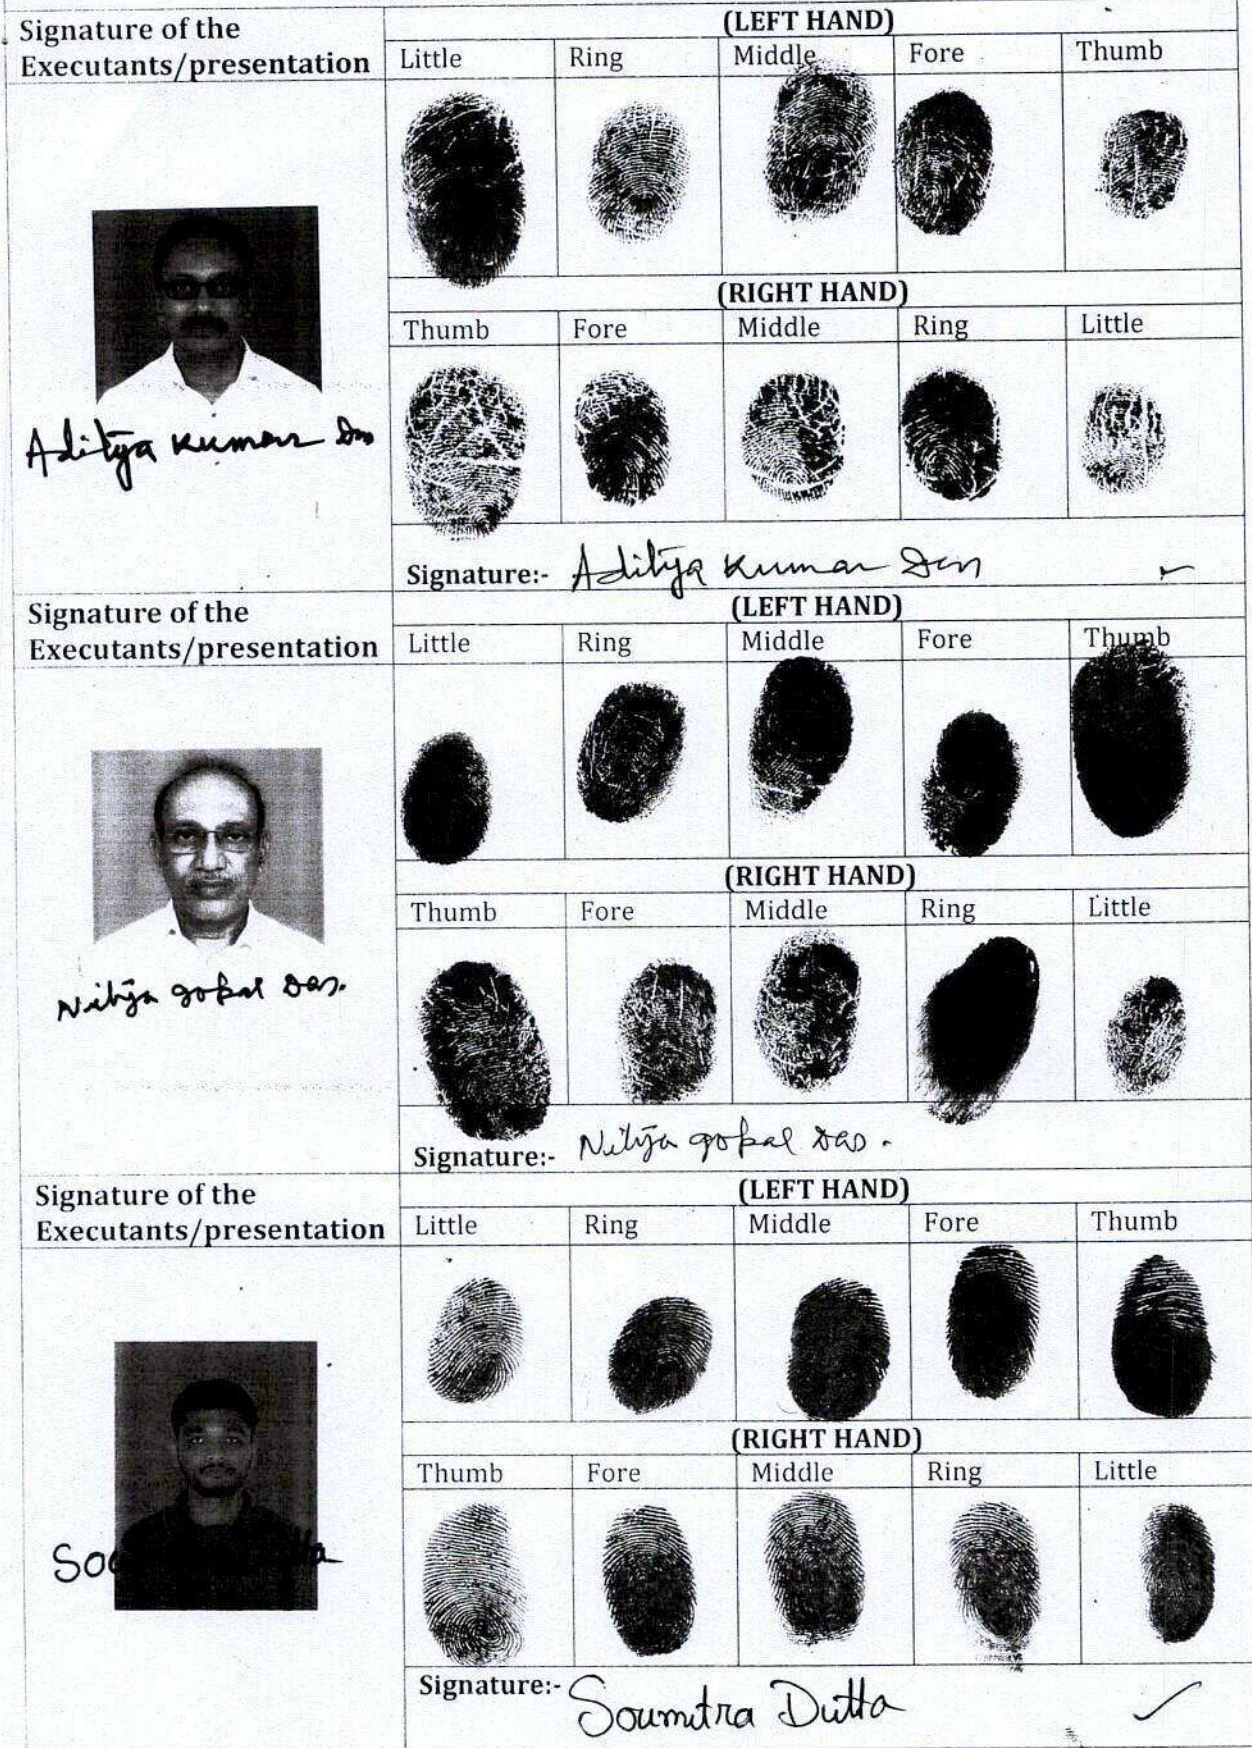 Signature of the
Executants/presentation
(LEFT HAND)
Little Ring Middle Fore Thumb
(RIGHT HAND)
Thumb Fore Middle Ring Little
Aditya Kumar Das
Signature:- Aditya Kumar Das
Signature of the
Executants/presentation
(LEFT HAND)
Little Ring Middle Fore Thumb
(RIGHT HAND)
Thumb Fore Middle Ring Little
Nitya gopal Das.
Signature:- Nitya gopal Das.
Signature of the
Executants/presentation
(LEFT HAND)
Little Ring Middle Fore Thumb
(RIGHT HAND)
Thumb Fore Middle Ring Little
Signature:- Soumitra Dutta